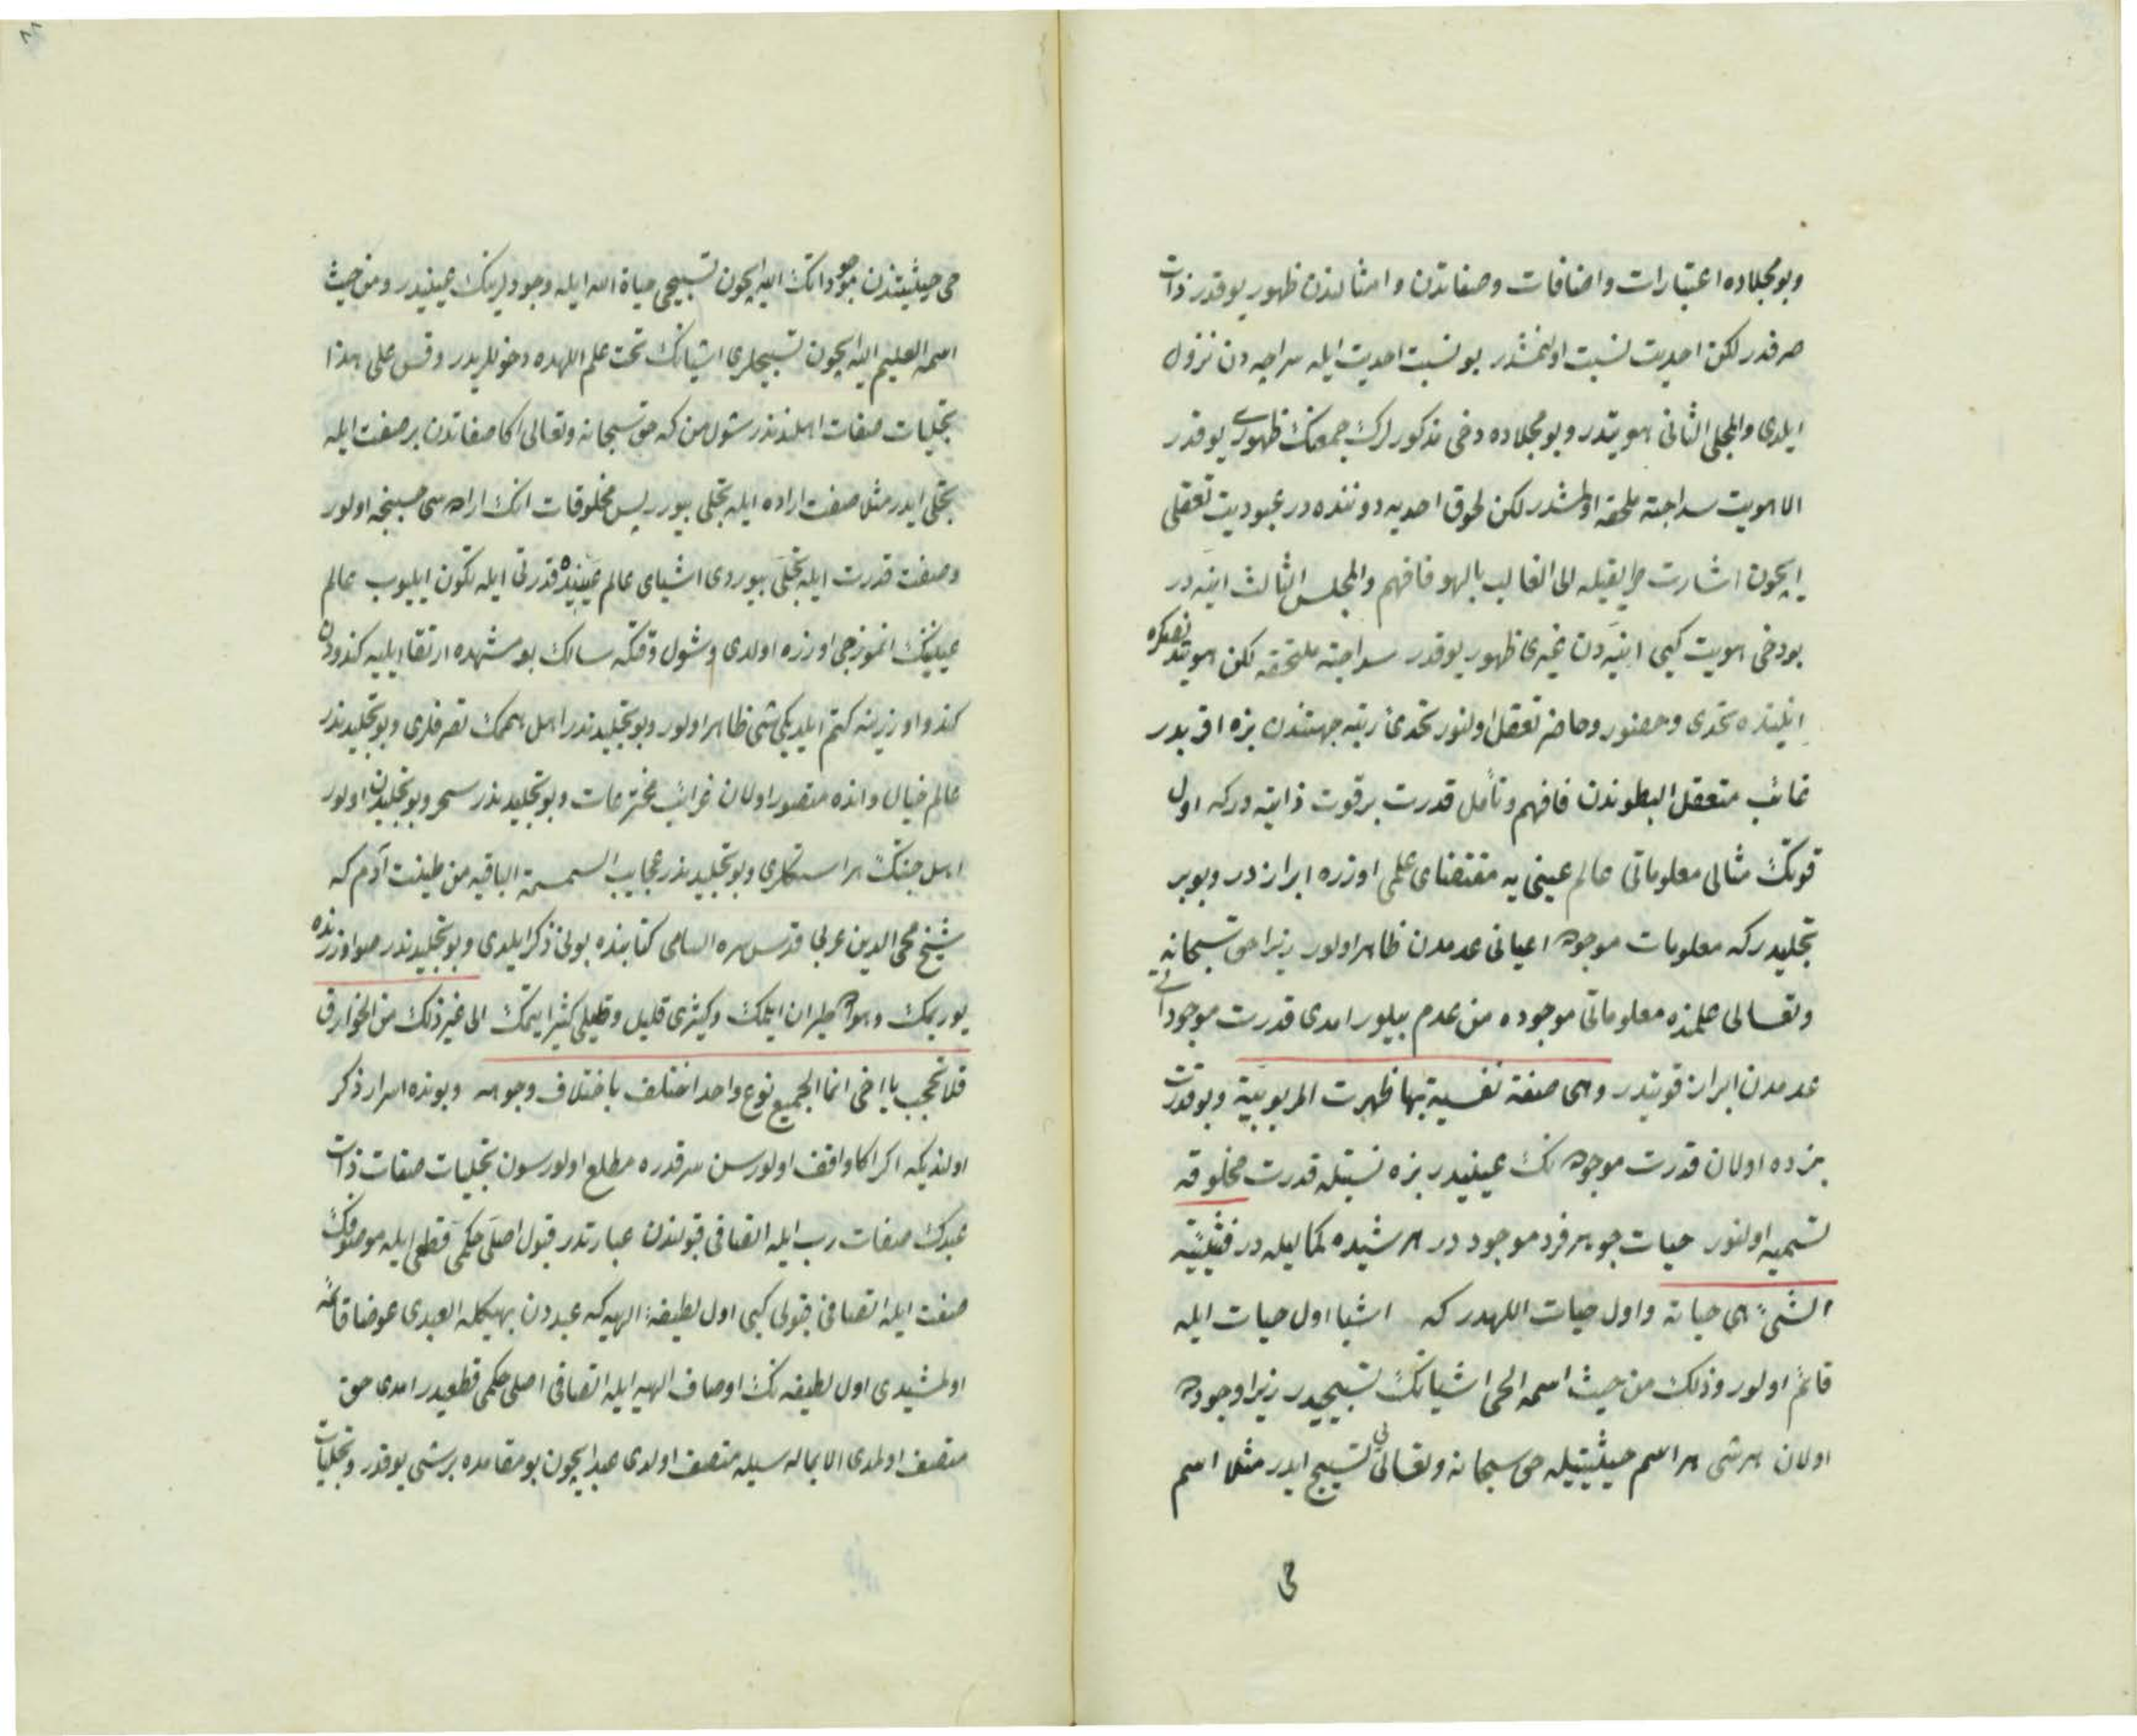 وبو مجلاده اعتبارات واضافات وصفاتدن وامثالندن ظهور يوقدر ذات
صرفدر لكن احديت نسبت اولنمشدر بو نسبت احديت ايله سراجيه دن نزول
ايلدى والمجلى الثانى هويتدر وبو مجلاده دخى مذكورلرك جمعنك ظهورى يوقدر
الا هويت سداجته ملحقه اولمشدر لكن لحوق احديه دوننده در عبوديت تعقلى
ايچون اشارت طريقيله الى الغالب بالهو فافهم والمجلس الثالث انيه در
بو دخى هويت كبى انيه دن غيرى ظهور يوقدر سداجته ملتحقه لكن هويتده
انيتده تحدى وحضور وحاضر تعقل اولنور تحدئ رتبه جهتندن بزه اقربدر
غائب متعقل البطوندن فافهم وتأمل قدرت بر قوت ذاتيه در كه اول
قوتك مثالى معلوماتى عالم عينى يه مقتضاى علمى اوزره ابرازدر وبو بر
تجليدر كه معلومات موجوده اعيانى عدمدن ظاهر اولور زيرا حق سبحانه
وتعالى علمنده معلوماتى موجوده من عدم بيلور امدى قدرت موجوداتى
عدمدن ابراز قوتيدر وهى صفة نفسية بها ظهرت الربوبية وبو قدرت
بزده اولان قدرت موجوده نك عينيدر بزه نسبتله قدرت مخلوقه
تسميه اولنور حيات جوهر فرد موجوددر هر شيده كماليله در فشيئية
الشئ هى حياته واول حيات اللهدر كه اشيا اول حيات ايله
قائم اولور وذلك من حيث اسمه الحى اشيانك تسبيحيدر زيرا وجوده
اولان هر شى هر اسم حيثيتيله حق سبحانه وتعالى يى تسبيح ايدر مثلا اسم
حى
حى حيثيتندن موجوداتك الله ايچون تسبيحى حياة الله ايله وجودلرينك عينيدر ومن حيث
اسمه العليم الله ايچون تسبيحلرى اشيانك تحت علم اللهده دخوللريدر وقس على هذا
تجليات صفات اهلندندر شول من كه حق سبحانه وتعالى اكا صفاتدن بر صفت ايله
تجلى ايدر مثلا صفت اراده ايله تجلى بيورر پس مخلوقات انك اراده سى حسبنجه اولور
وصفت قدرت ايله تجلى بيوردى اشياى عالم عينيده قدرتى ايله تكون ايليوب عالم
عينينك انموزجى اوزره اولدى وشول وقتكه سالك بو مشهده ارتقا ايليه كندودن
كندو اوزرينه كتم ايلديكى شى ظاهر اولور وبو تجليدندر اهل همك تصرفلرى وبو تجليدندر
عالم خيال وانده متصور اولان غرائب مخترعات وبو تجليدندر سحر وبو تجليدن اولور
اهل جنتك هر استكلرى وبو تجليدندر عجايب السمسمة الباقيه من طينت آدم كه
شيخ محى الدين عربى قدس سره السامى كتابنده بونى ذكر ايلدى وبو تجليدندر صو اوزرنده
يوريمك وهواده طيران ايلمك وكثيرى قليل وقليلى كثير ايتمك الى غير ذلك من الخوارق
فلا تعجب يا اخى انما الجميع نوع واحد اختلف باختلاف وجوهه وبونده اسرار ذكر
اولندى كه اكر اكا واقف اولورسن سر قدره مطلع اولورسون تجليات صفات ذات
عبدك صفات رب ايله اتصافى قبولندن عبارتدر قبول اصلى حكمى قطعى ايله موصوفك
صفت ايله اتصافى قبولى كبى اول لطيفۀ الهيه كه عبددن بهيكله العبدى عوضا قائمه
اولمشيدى اول لطيفه نك اوصاف الهيه ايله اتصافى اصلى حكمى قطعيدر امدى حق
متصف اولمدى الا بماله سيله متصف اولدى عبد ايچون بو مقامده بر شى يوقدر وتجليات